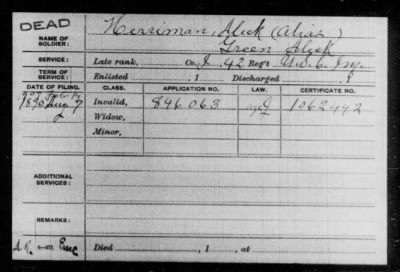 DEAD
NAME OF SOLDIER: Herriman, Aleck (Alias)
Green Aleck
SERVICE: Late rank, Co. I, 42 Reg't U.S.C. Inf.
TERM OF SERVICE: Enlisted , 1 Discharged , 1
DATE OF FILING. CLASS. APPLICATION NO. LAW. CERTIFICATE NO.
1890 Aug 7 Invalid, 846063 1062442
Widow,
Minor,
ADDITIONAL SERVICES:
REMARKS:
Died , 1 , at